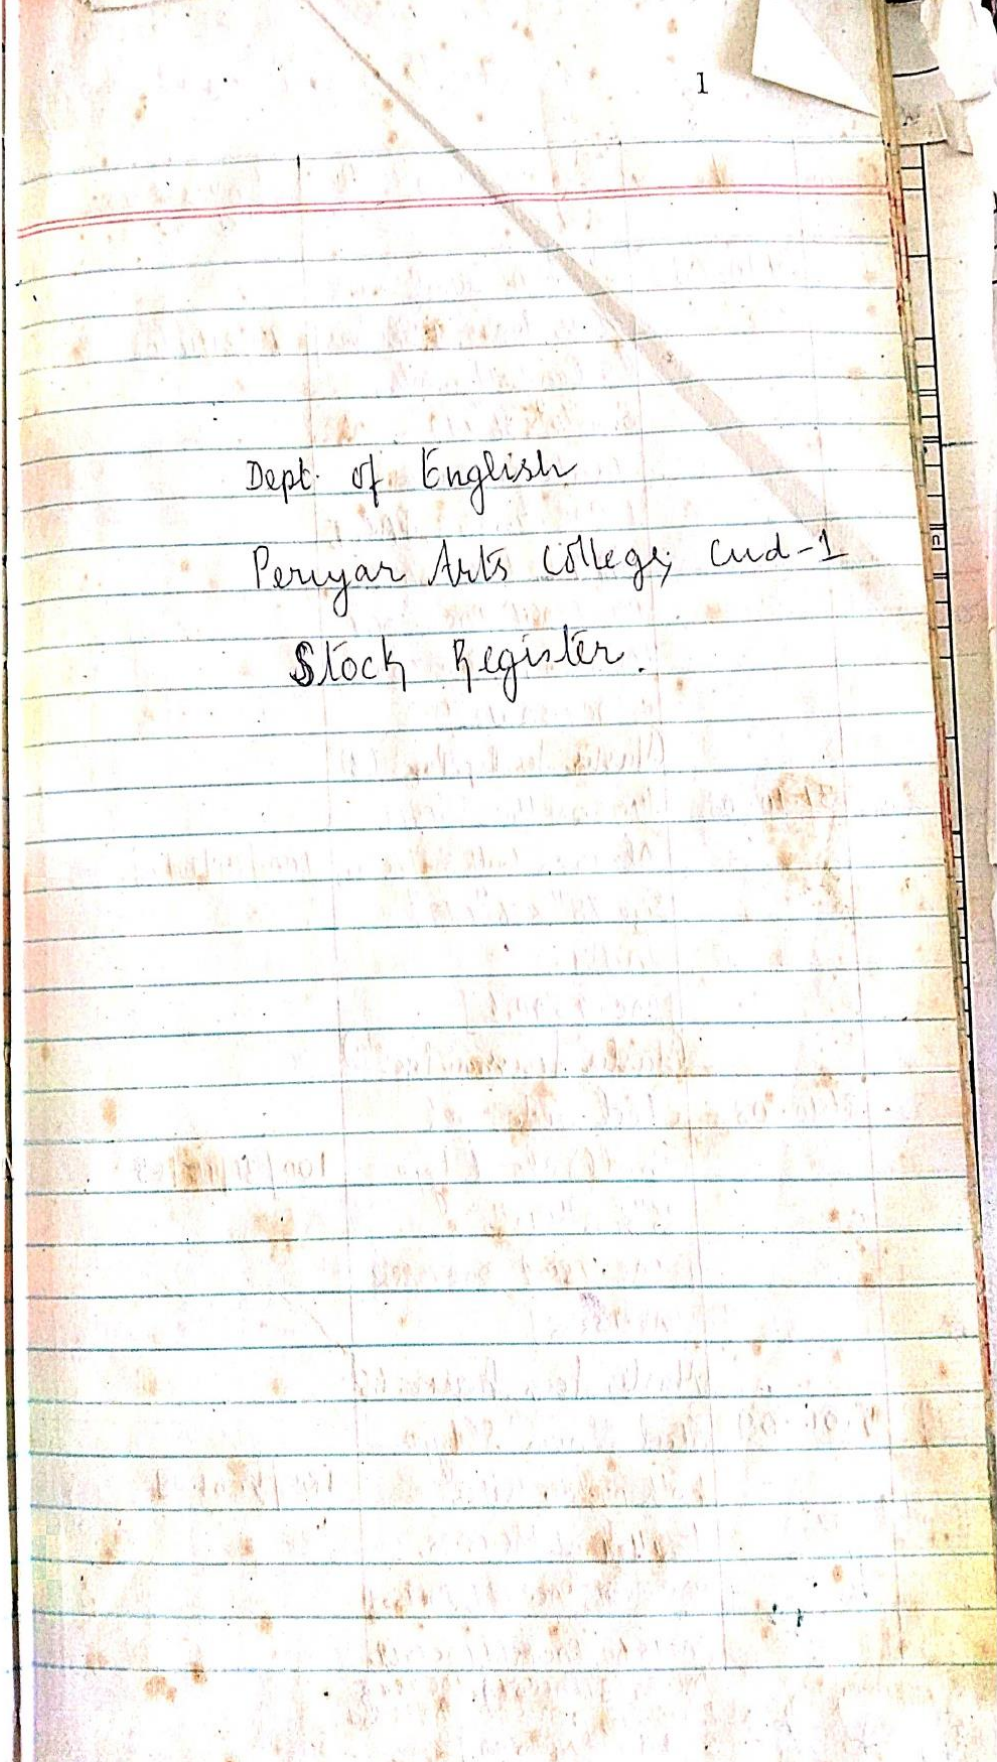 1
Dept. of English
Periyar Arts College, Cud-1
Stock Register.